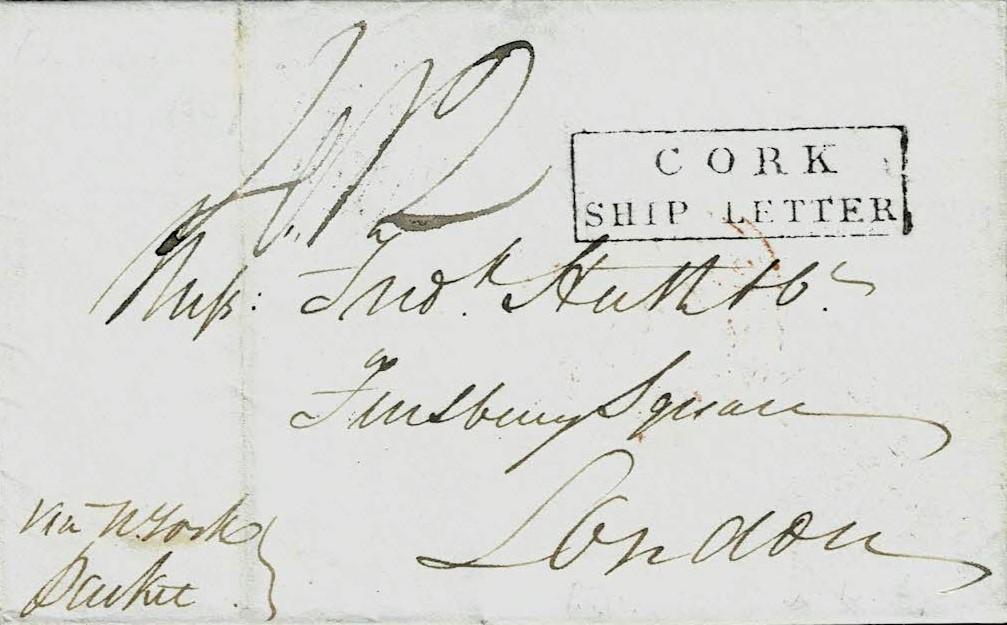 1/2
CORK
SHIP LETTER
Mess: Fredk. Huth & Co.
Finsbury Square
London
via N. York
Packet